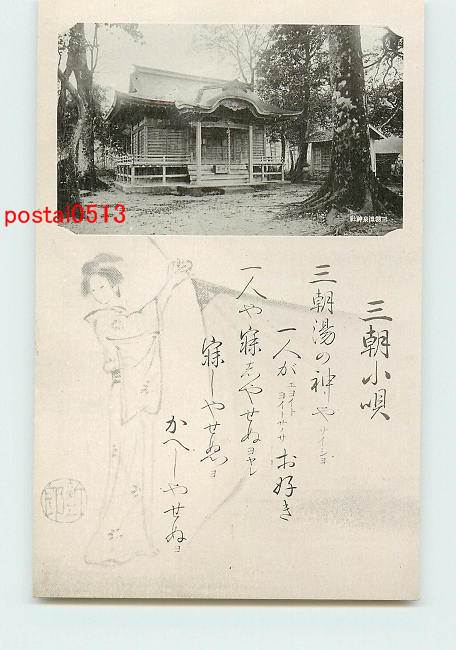 三朝温泉神社
postal0513
三朝小唄
三朝湯の神やサイショ
一人がヨイトヨイトサノサお好き
一人や寐しやせぬヨヤレ
寐しやせぬヨ
かへしやせぬヨ